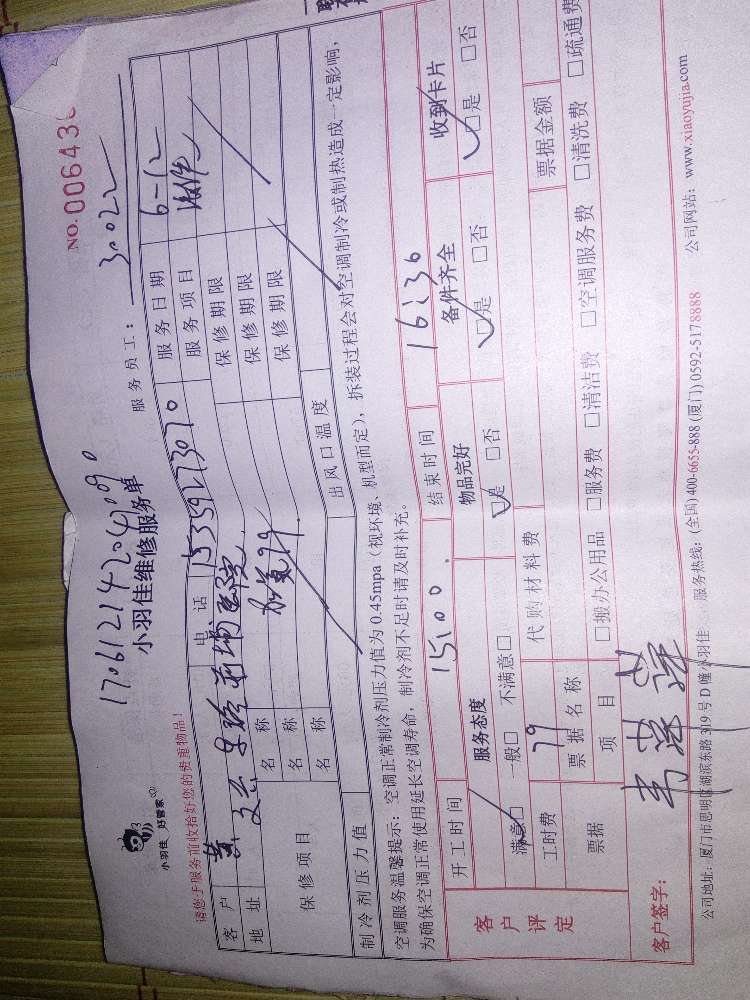 NO. 006436
小羽佳 好管家
170612142047090
小羽佳维修服务单
服务员工: 30022
请您于服务前收拾好您的贵重物品!
客户 黄 电话 15359273070 服务日期 6-12
地址 服务项目
保修项目 名称 保修期限
名称 保修期限
名称 保修期限
制冷剂压力值 出风口温度
空调服务温馨提示: 空调正常制冷剂压力值为 0.45mpa (视环境、机型而定), 拆装过程会对空调制冷或制热造成一定影响,
为确保空调正常使用延长空调寿命, 制冷剂不足时请及时补充。
开工时间 15:00 结束时间 16:30
客户评定
服务态度 物品完好 备件齐全 收到卡片
满意□ 一般□ 不满意□ □是 □否 □是 □否 □是 □否
工时费 79 代购材料费 票据金额
票据 票据名称
项目 □搬办公用品 □服务费 □清洁费 □空调服务费 □清洗费 □疏通费
客户签字:
公司地址: 厦门市思明区湖滨东路 319 号 D 幢小羽佳 服务热线: (全国) 400-6655-888 (厦门) 0592-5178888 公司网站: www.xiaoyujia.com